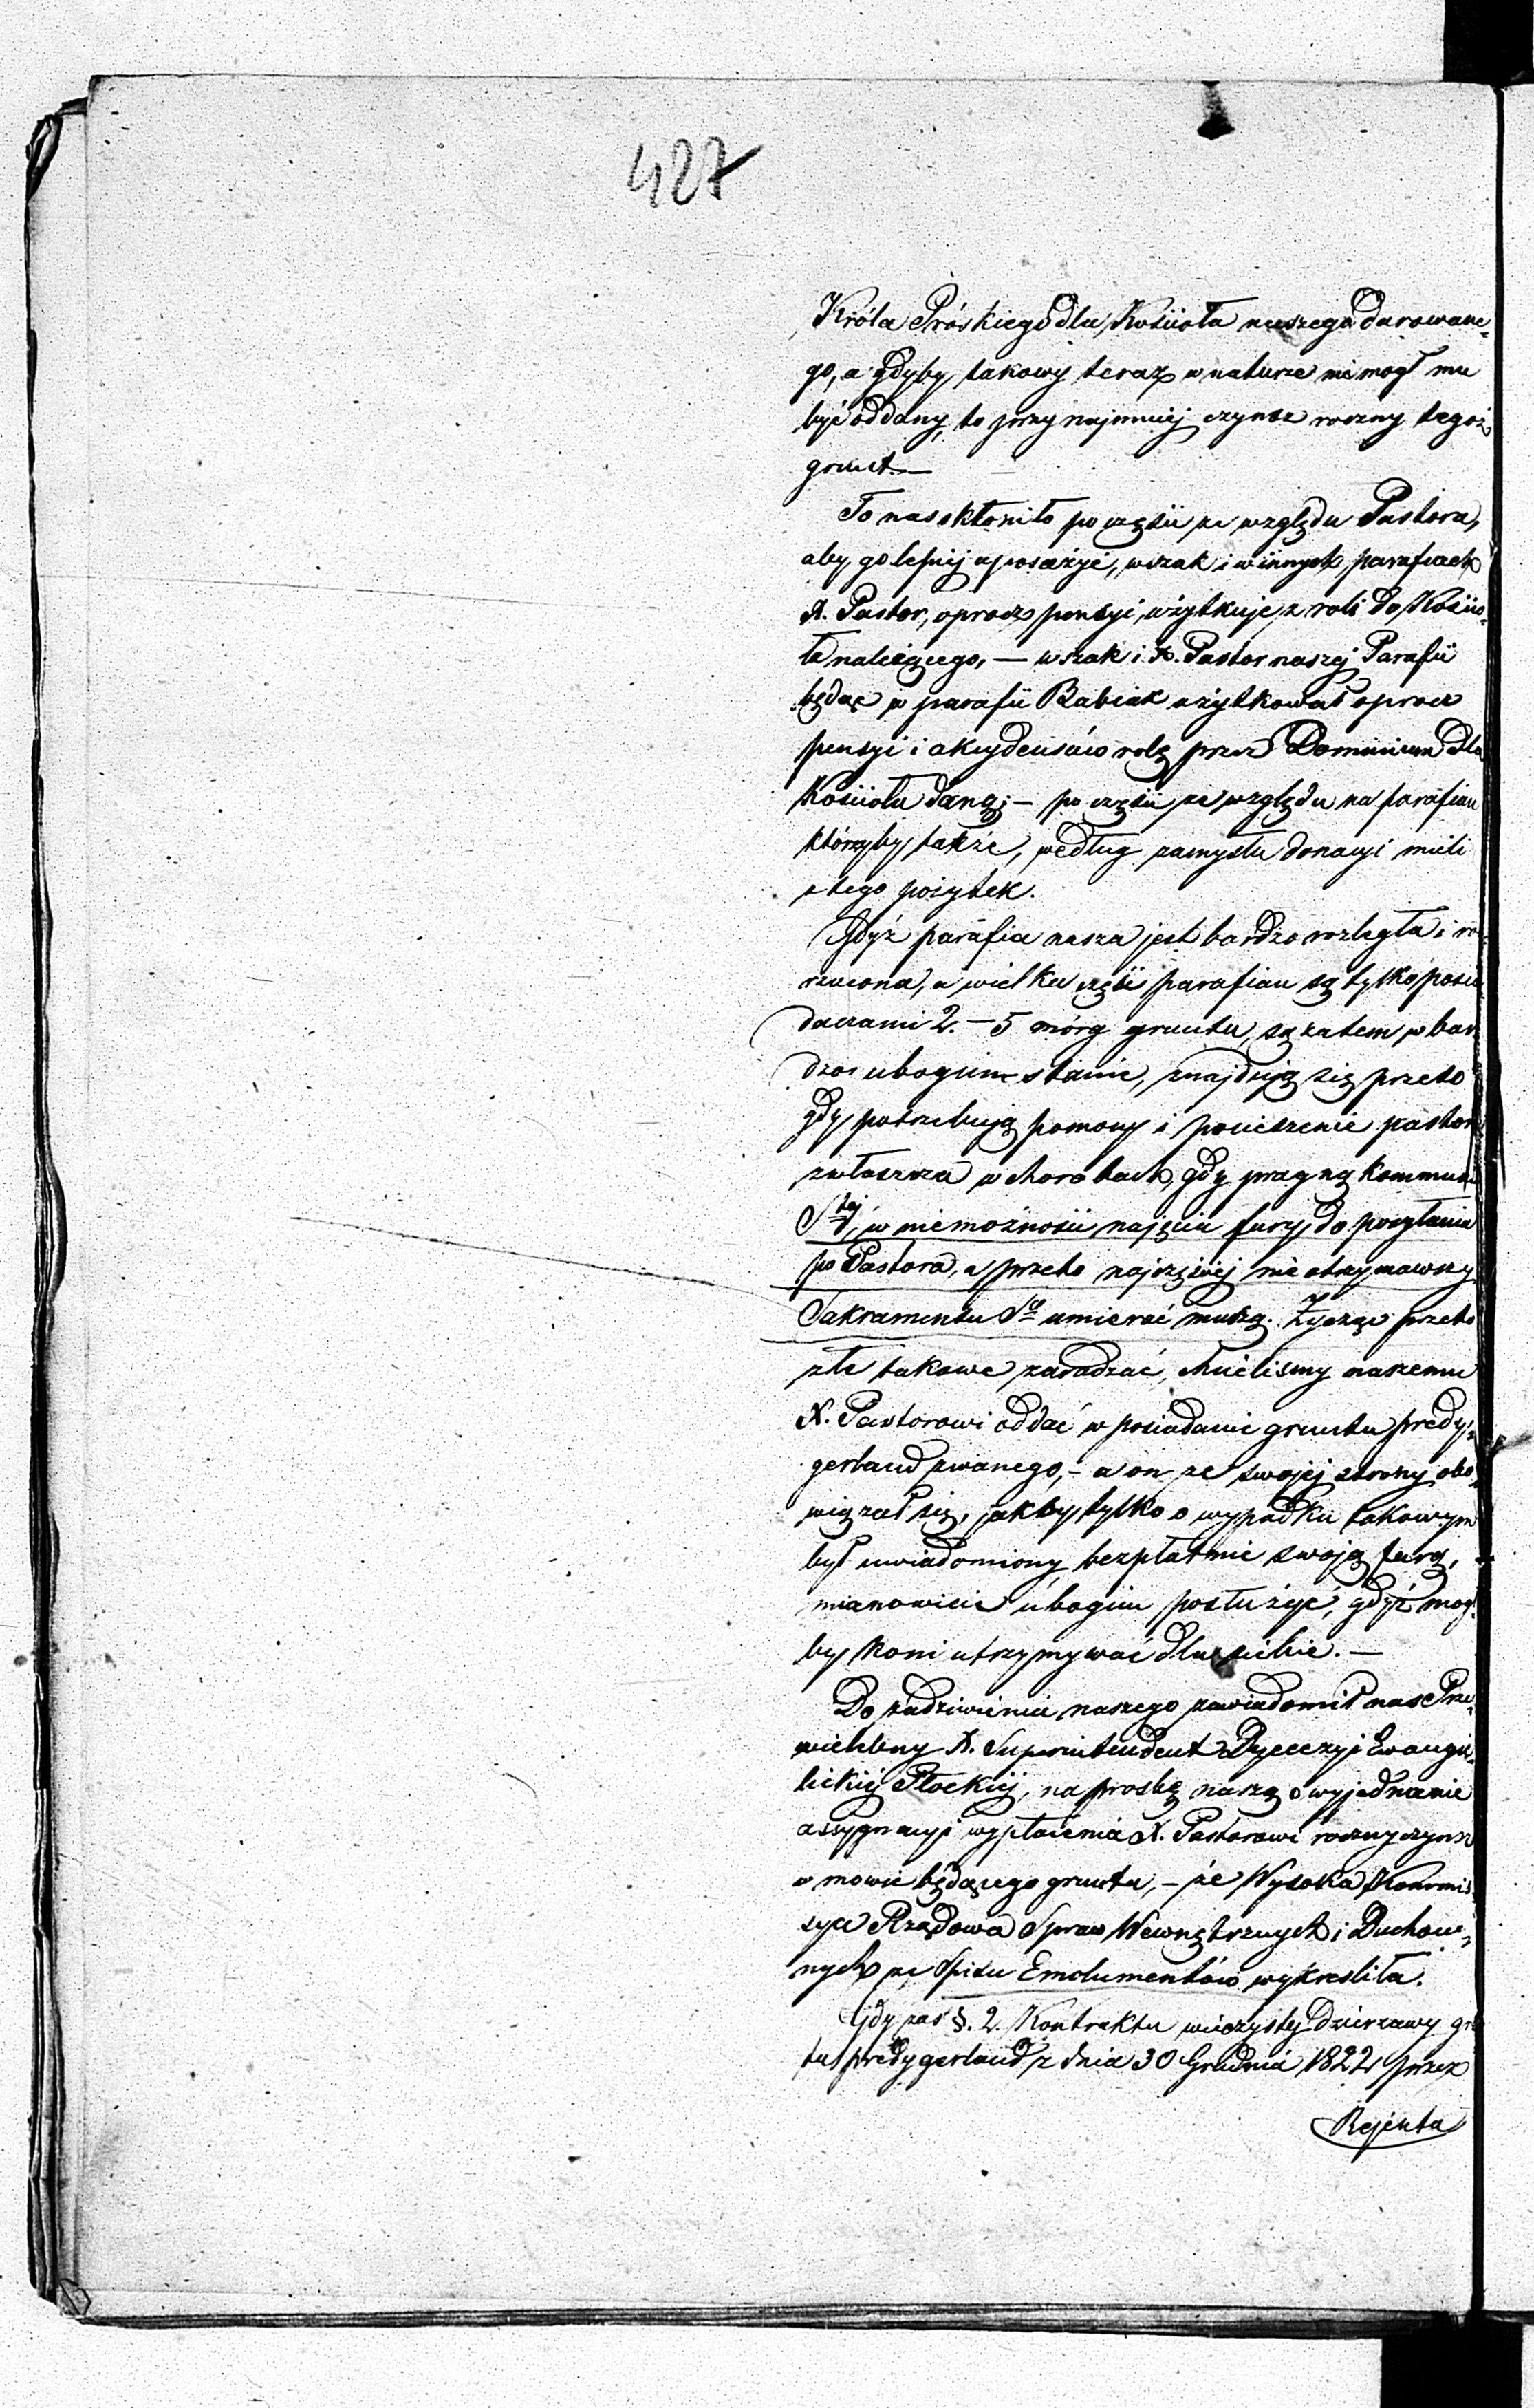 427
Króla Próskiego dla Kosiioła naszego darowane-
go, a gdyby takowy teraz w naturze nie mogł mu
być oddany, to przynajmniej czynsz roczny tegoż
grunt.—
To nas skłoniło po częsii ze względu Pastora,
aby go lepiej uposażyć, wszak i w innych parafiach
X. Pastor, oprocz pensyi, użytkuje z roli do Kosiio-
ła należącego, — wszak i X. Pastor naszej Parafii
będąc w parafii Babiak użytkował oprocz
pensyi i akcydensów rolę przez Dominium dla
Kosiioła daną; — po częsii ze względu na parafian
którzyby także, według zamysłu donacyi mieli
z tego pożytek.
Gdyż parafia nasza jest bardzo rozległa i roz-
rzucona, a wielka częsii parafian są tylko posia-
daczami 2. — 5 mórg gruntu, są zatem w bar
dzo ubogim stanie, znajdują się przeto
gdy potrzebują pomocy i pocieszenie pastor
zwłaszcza w chorobach, gdy pragną kommuni
Stej, w niemożnosii najęcia fury do posyłania
po Pastora, a przeto najczęsiiej nie otrzymawszy
Sakramentu So umierać muszą. Życząc przeto
złe takowe zaradzać, chcieliśmy naszemu
X. Pastorowi oddać w posiadanie gruntu predy-
gerland zwanego, — a on ze swojej strony obo
wiązał się, jakby tylko o wypadku takowym
był uwiadomiony bezpłatnie swoją furą,
mianowicie ubogim posłużyć, gdyż mogł
by Koni utrzymywać dla siebie. —
Do zadziwienia naszego zawiadomił nas Prze-
wielebny X. Superintendent Dyecezyi Ewangie-
lickiej Płockiej, na prosbę naszą o wyjednanie
assygnacyi wypłacenia X. Pastorowi roczny czynsz
w mowie będącego gruntu, — że Wysoka Kommis-
syа Rządowa Spraw Wewnętrznych i Duchow-
nych ze Spisu Emolumentów wykresliła.
Gdy zas §. 2. Kontraktu wieczystej Dzierzawy gru
tu predygerland z dnia 30 Grudnia 1822 przez
Rejenta